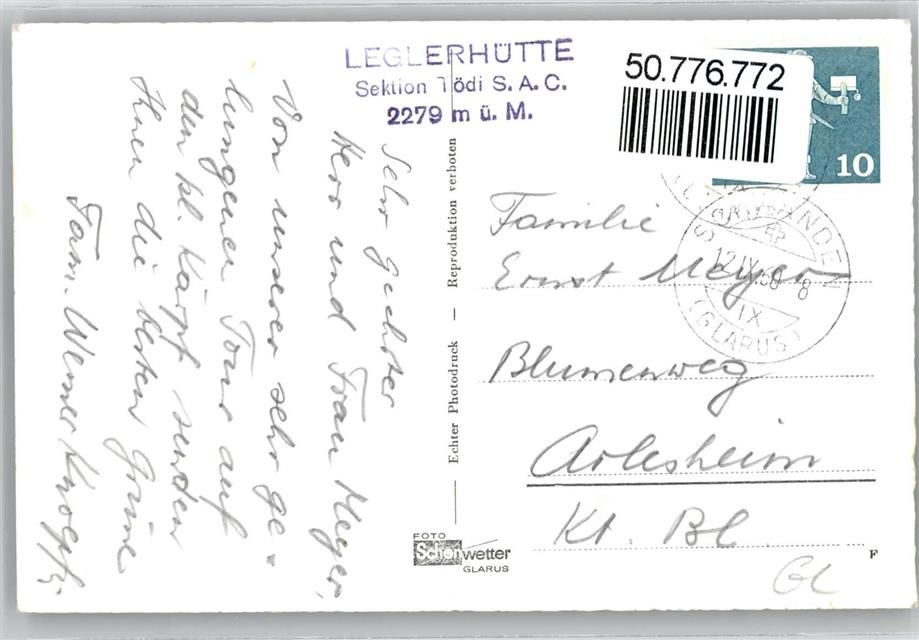 LEGLERHÜTTE
Sektion Tödi S. A. C.
2279 m ü. M.
50.776.772
10
SCHWÄNDEN
12.IX.60-8
IX
(GLARUS)
Sehr geehrter
Herr und Frau Meyer,
Von unserer sehr ge-
lungenen Tour auf
den kl. Kärpf senden
Ihnen die besten Grüsse
Fam. Werner
Echter Photodruck — Reproduktion verboten
Familie
Ernst Meyer
Blumenweg
Arlesheim
Kt. BL.
FOTO
Schönwetter
GLARUS
F
GL